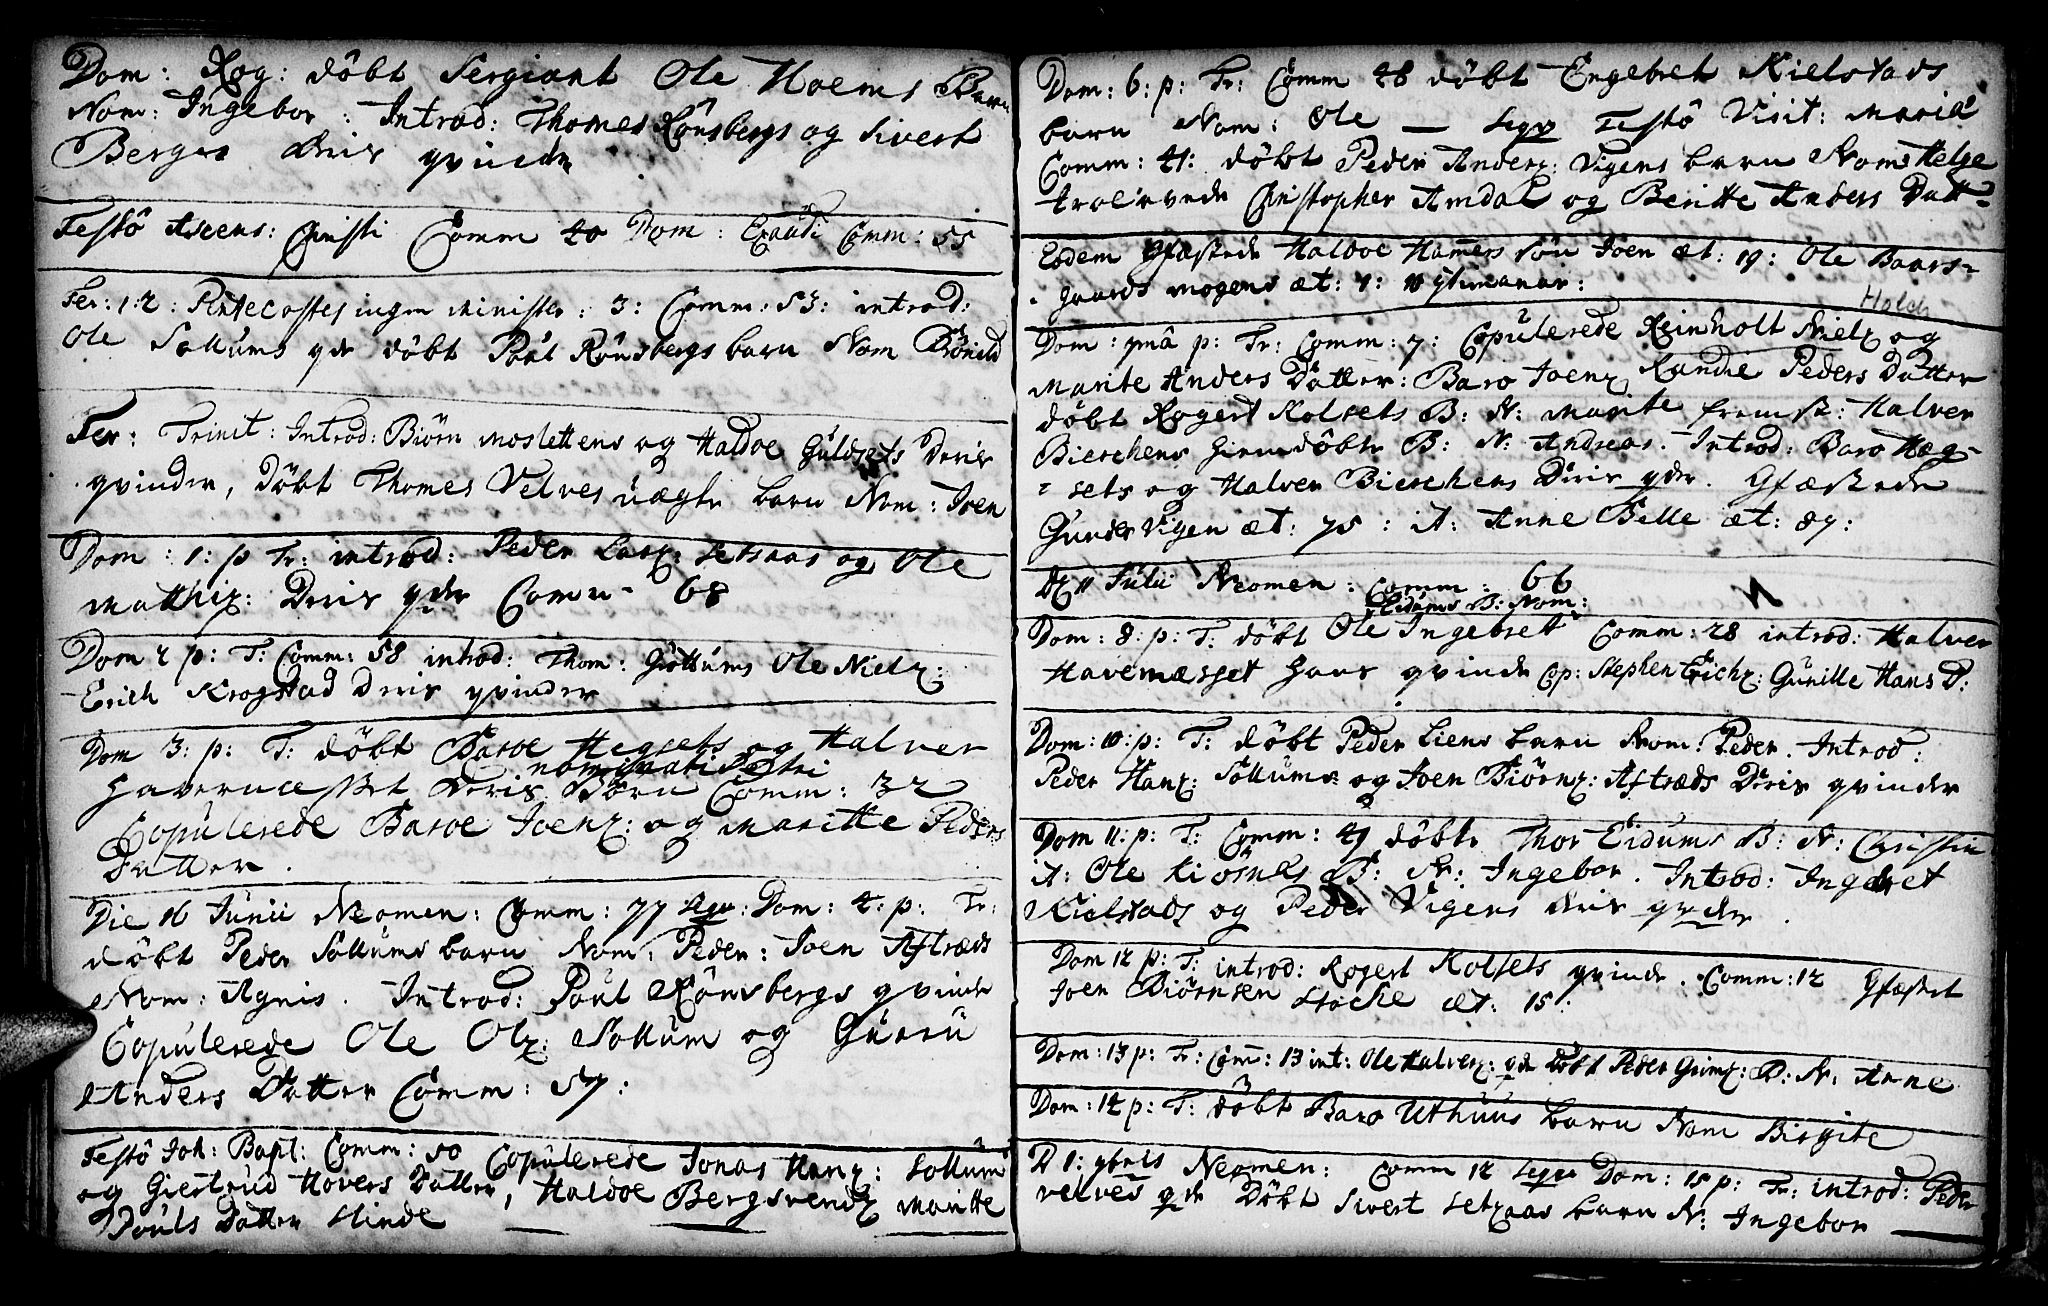 Dom: Rog: döbt Sergiant Ole Moens Barn
Nom: Ingebor : Introd: Thomes Rönsbergs og Sivert
Berges Deris qvinder
Festô Ascens: Christi Comm 40 Dom: Exaudi Comm: 55
Fer: 1: 2: Pentecostes ingen Minister: 3: Comm: 53: introd:
Ole Sollums qde döbt Poul Rönsbergs barn Nom
Fer: Trinit: Introd: Biörn Moslettens og Haldoe Guldsets Deris
qvinder, Döbt Thomes Velves uægte barn Nom: Joen
Dom: 1: p Tr: introd: Peder Larz: Setsaas og Ole
Matthiz: Deris qder Comm 68
Dom 2 p: T: Comm: 58 introd: Thom: Gottums Ole Nielz:
Erich Krogstad Deris qvinder
Dom 3: p: T: döbt Baroe Hegsets og Halver
nominati Petri
Havernesset Deris Börn Comm: 32
Copulerede Baroe Joenz: og Maritte Peders
Datter.
Die 16 Junii Neomen: Comm: 77 seqv: Dom: 4: p: Tr:
döbt Peder Sollums barn Nom: Peder: Joen Aftræds
Nom: Agnis. Introd: Poul Rönsbergs qvinde
Copulerede Ole Olz: Sollum og Guru
Anders Datter Comm: 57:
Festô Joh: Bapt: Comm: 50 Copulerede Jonas Hanz: Sollum
og Giertrud Hovers Datter, Haldoe Bergsvendz Maritte
Pouls Datter Stinde
Dom: 6: p: Tr: Comm 48 döbt Engebret Kielstads
barn Nom: Ole — seqv Festô Visit: Mariæ
Comm: 41: döbt Peder Anderz: Vigens barn Nom: Helge
trolovede Christopher Amdal og Beritte Anders Datt=
Eodem Gfæstede Haldoe Hamers sön Joen æt: 19: Ole Baars=
gaards Mogens æt: 7:
Holch
Dom: 7mâ p: Tr: Comm: 7: Copulerede Reinholt Nielz og
Marite Anders Datter: Baro Joenz Randie Peders Datter
döbt Rogert Kolsets B: N: Marite fremst: Halver
Bierchens hiemdöbte B: N: Andreas. Introd: Baro Hæg=
= sets og Halver Bierchens Deris qder. Gfæstede
Gunder Vigen æt: 75 : it: Anne Belle æt: 87:
D 11 Julii Neomen: Comm: 66
Eidums B: Nom:
Dom: 8: p: T: döbt Ole Ingebret Comm: 28 introd: Halver
Havernæsset hans qvinde Cop: Stephen Erichz: Gunille Hans D:
Dom: 10: p: T: döbt Peder Liens barn Nom: Peder. Introd:
Peder Hanz: Sollums og Joen Biörnz: Aftræds Deris qvinder
Dom 11: p: T: Comm: 49 döbt Thor Eidums B: N: Christin
it: Ole Kiösnes B: N: Ingebor. Introd: Ingebret
Kielstads og Peder Vigens deris qder.
Dom 12 p: T: introd: Rogert Kolsets qvinde. Comm: 12 Gfæstet
Joen Biörnsen Stocke æt: 15:
Dom: 13 p: Tr: Com: 13 int: Ole Halverz: qde Döbt Peder Grimz: B: N: Anne
Dom: 14 p: T: döbt Baro Uthuus barn Nom Birgite
D 1: 7bris Neomen: Comm 12 seqv Dom: 15 p: Tr: introd: Peder
Velves qde Döbt Sivert Setsaas barn N: Ingebor